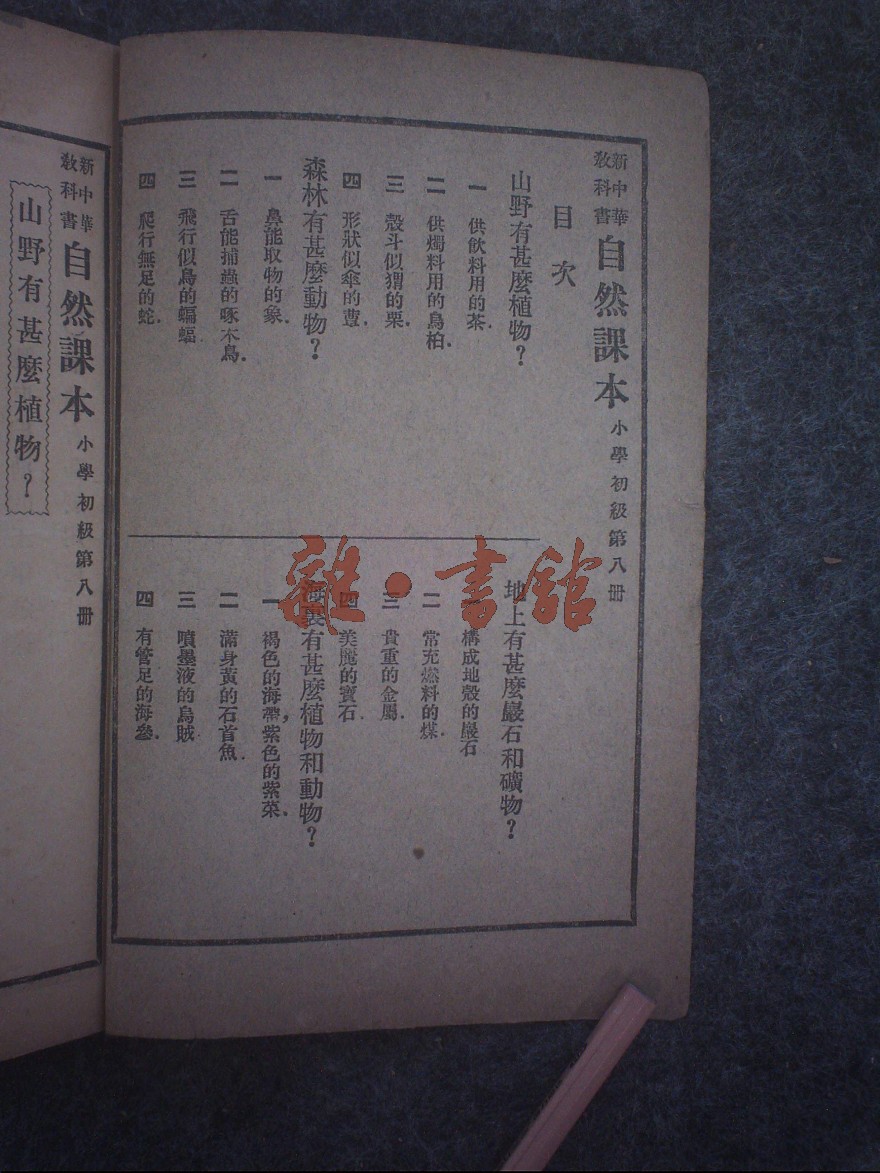 新中華
教科書
自然課本 小學初級第八册
目次
山野有甚麼植物？
一 供飲料用的茶.
二 供燭料用的烏桕.
三 殼斗似猬的栗.
四 形狀似傘的蕈.
森林有甚麼動物？
一 鼻能取物的象.
二 舌能捕蟲的啄木鳥.
三 飛行似鳥的蝙蝠.
四 爬行無足的蛇.
地上有甚麼巖石和礦物？
一 構成地殼的巖石
二 常充燃料的煤.
三 貴重的金屬.
四 美麗的寶石.
海裏有甚麼植物和動物？
一 褐色的海帶，紫色的紫菜.
二 滿身黃的石首魚.
三 噴墨液的烏賊
四 有管足的海參.
新中華
教科書
自然課本 小學初級第八册
山野有甚麼植物？
雜·書館